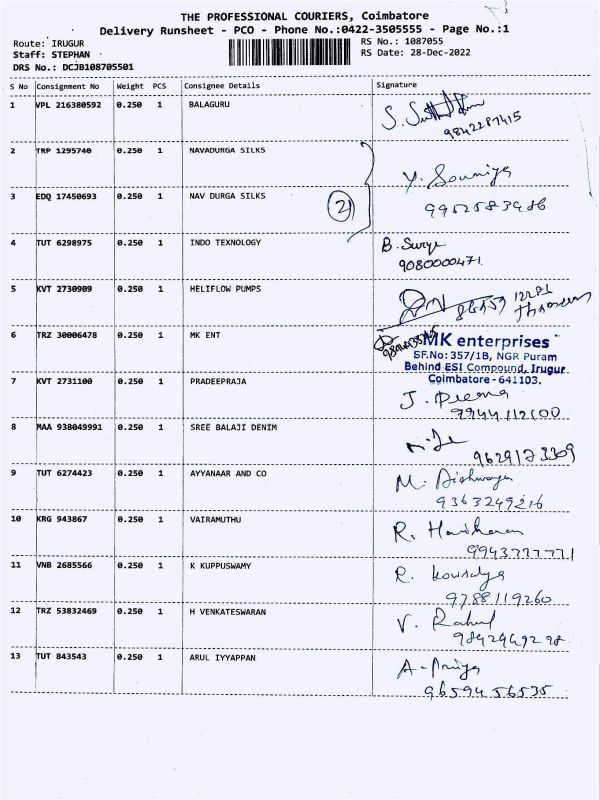 THE PROFESSIONAL COURIERS, Coimbatore
Delivery Runsheet - PCO - Phone No.:0422-3505555 - Page No.:1
Route: IRUGUR RS No.: 1087055
Staff: STEPHAN RS Date: 28-Dec-2022
DRS No.: DCJB108705501
S No Consignment No Weight PCS Consignee Details Signature
1 VPL 216380592 0.250 1 BALAGURU
9842287415
2 TRP 1295740 0.250 1 NAVADURGA SILKS
Y. Sowmiya
3 EDQ 17450693 0.250 1 NAV DURGA SILKS
2
4 TUT 6298975 0.250 1 INDO TEXNOLOGY B. Surya
9080000471
5 KVT 2730909 0.250 1 HELIFLOW PUMPS
6 TRZ 30006478 0.250 1 MK ENT
MK enterprises
SF.No: 357/1B, NGR Puram
Behind ESI Compound, Irugur
Coimbatore - 641103.
7 KVT 2731100 0.250 1 PRADEEPRAJA
9944112100
8 MAA 938049991 0.250 1 SREE BALAJI DENIM
9629173309
9 TUT 6274423 0.250 1 AYYANAAR AND CO M. Aishwarya
9363249216
10 KRG 943867 0.250 1 VAIRAMUTHU R. Hariharan
9943777771
11 VNB 2685566 0.250 1 K KUPPUSWAMY R. Kowsalya
9788119260
12 TRZ 53832469 0.250 1 H VENKATESWARAN V. Rahul
9842969298
13 TUT 843543 0.250 1 ARUL IYYAPPAN A-Priya
9659456535